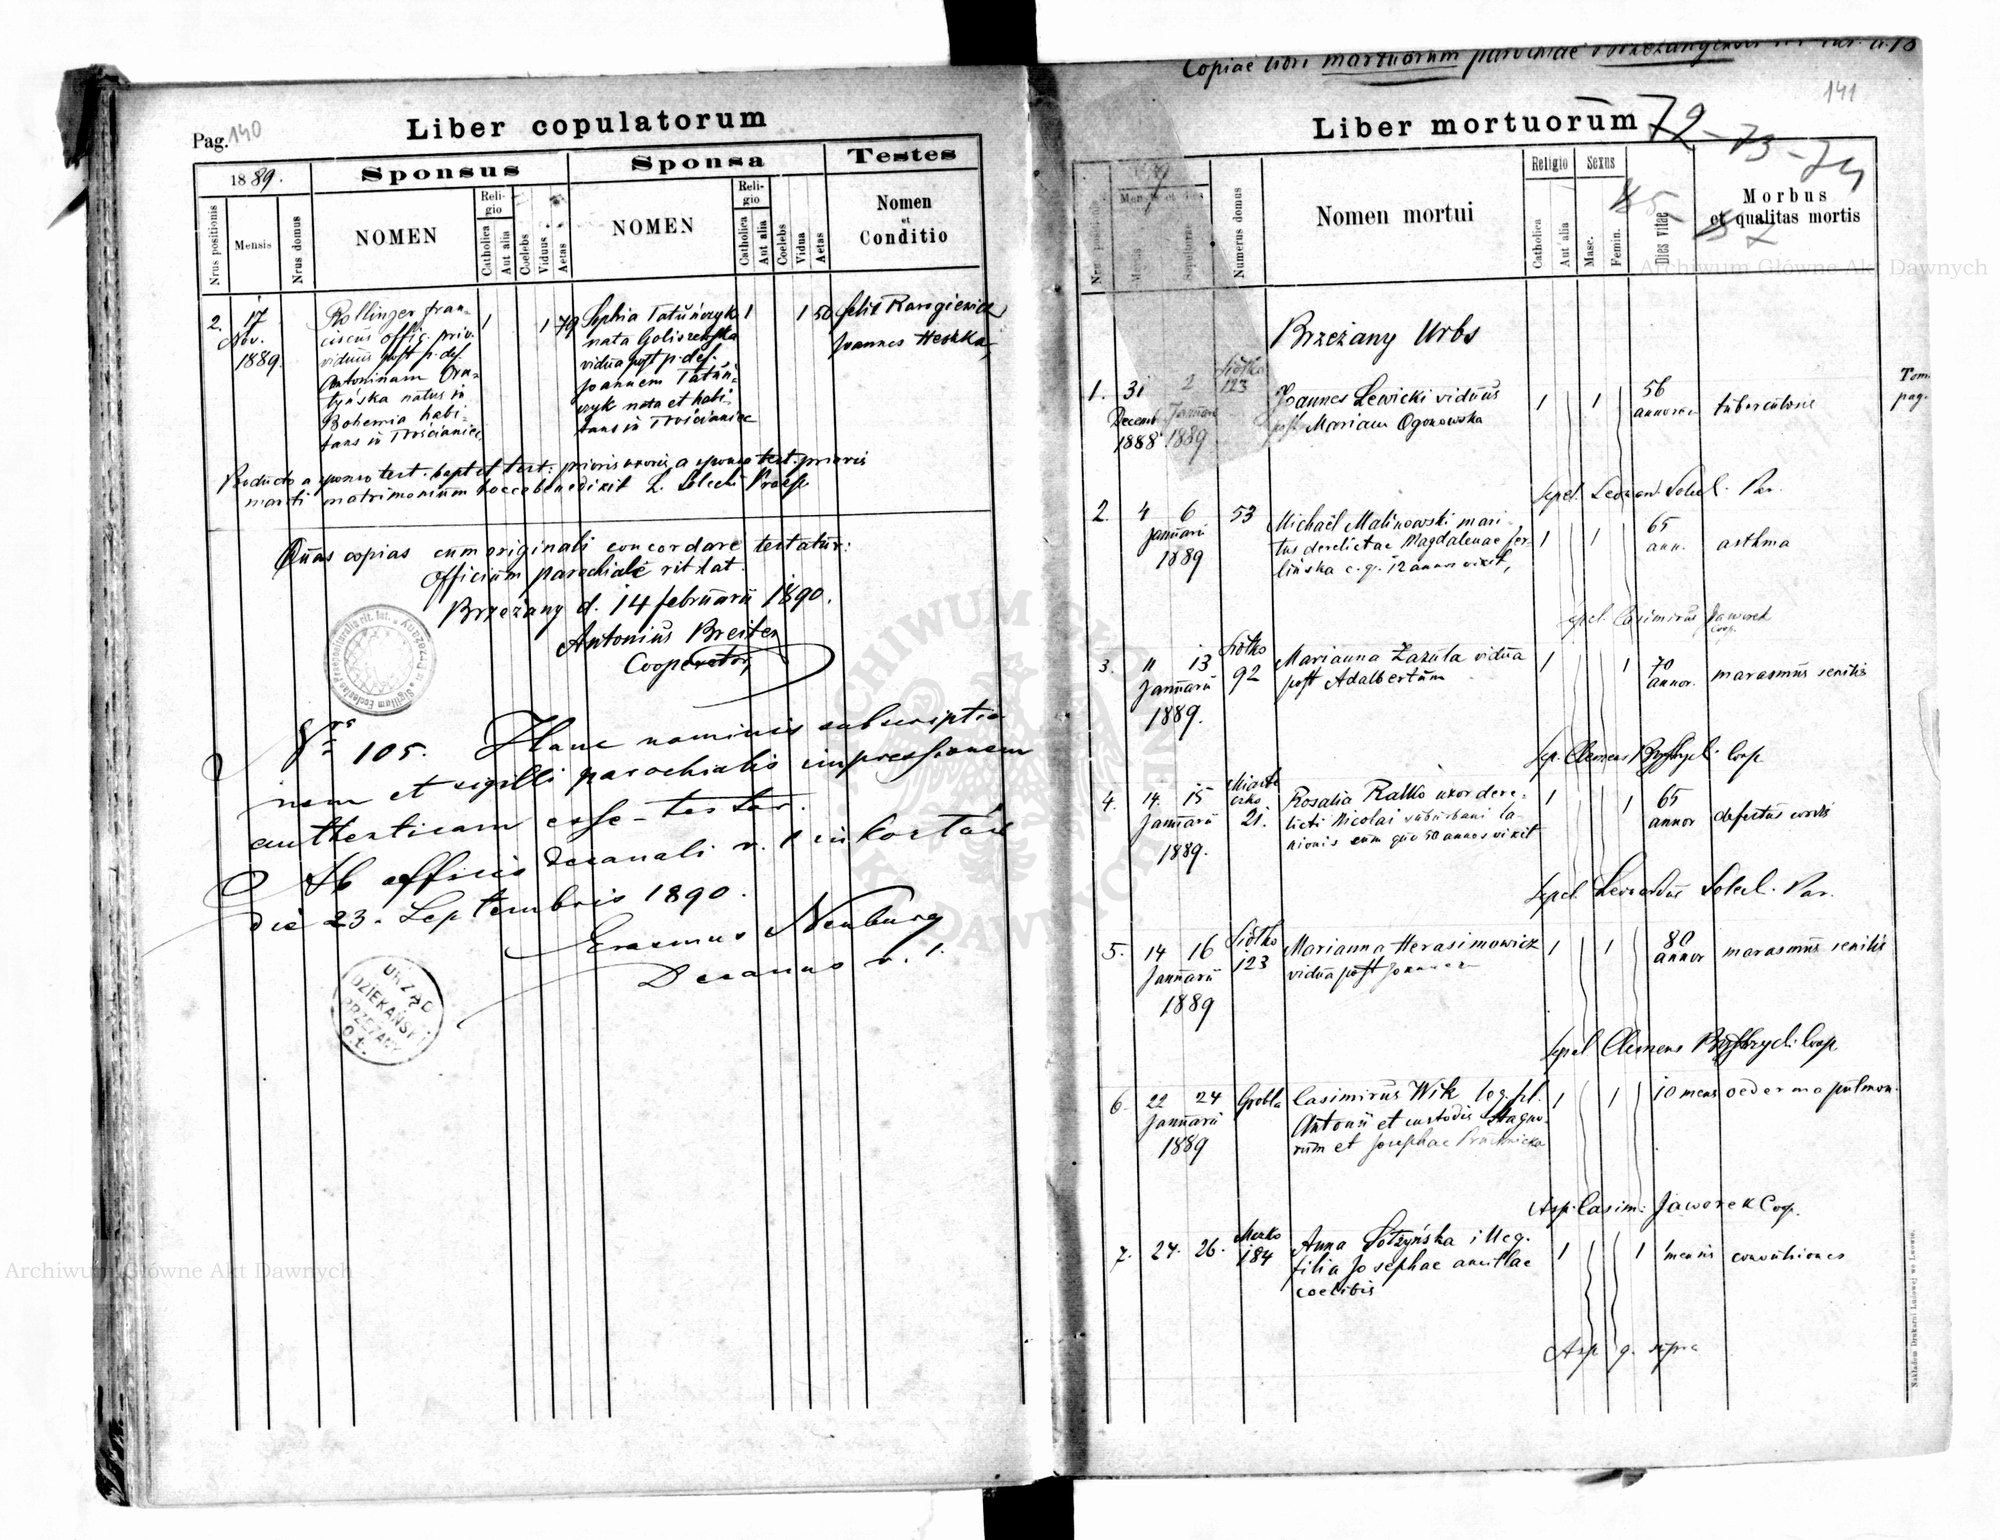 Pag. 140
Liber copulatorum
1889.
Sponsus
Sponsa
Testes
Nrus positionis
Mensis
Nrus domus
NOMEN
Religio
Catholica
Aut alia
Coelebs
Viduus
Aetas
NOMEN
Religio
Catholica
Aut alia
Coelebs
Vidua
Aetas
Nomen
et
Conditio
2. 17
Nov.
1889.
Rollinger Fran-
ciscus offic. priv.
viduus post p. def.
Antoninam
natus in
Bohemia habi-
tans in Trościaniec
1 1 79
Sophia Tatuńczyk
nata
vidua post p. def.
Joannem Tatuń-
czyk nata et habi-
tans in Trościaniec
1 1 50
Felix
Joannes Heszka
Producto a sponso test. bapt et test: prioris uxoris a sponsa test. prioris
mariti matrimonium hocce benedixit L. Solecki
Quas copias cum originali concordare testatur:
Officium parochiale rit lat.
Brzeżany d. 14 februarii 1890.
Antonius Breiter
Cooperator
Nrus 105. Hanc nominis subscriptio
nem et sigilli parochialis impressionem
authenticam esse testor.
Ab officio decanali r. l. in
die 23. Septembris 1890.
Erasmus Neuburg
Decanus r. l.
URZĄD
DZIEKAŃSKI
BRZEŻANY
O.Ł.
Copiae libri mortuorum parochiae Brzezanyensis
141
Liber mortuorum
72 - 73 - 74
Nrus positionis
Mensis et dies
Mortis
Sepulturae
Numerus domus
Nomen mortui
Religio
Catholica
Aut alia
Sexus
Masc.
Femin.
Dies vitae
Morbus
et qualitas mortis
Brzeżany Urbs
Tom.
pag.
1. 31 2 Siółko
Decemb Januarii 123
1888. 1889
Joannes Lewicki viduus
post Mariam Ogonowska
1 1 56
annorum
tuberculosis
Sepel. Leonard Solecki Par.
2. 4 6 53
Januarii
1889
Michaël Malinowski mari-
tus derelictae Magdalenae Ter-
lińska c. q. 12 annos vixit,
1 1 65
ann.
asthma
sepel. Casimirus Jaworek
Coop.
3. 11 13 Siółko
Januarii 92
1889.
Marianna Zazula vidua
post Adalbertum
1 1 70
annor.
marasmus senilis
Sep. Clemens Coop
4. 14. 15 Miaste
czko
Januarii 21.
1889.
Rosalia Ratko uxor dere-
licti Nicolai suburbani la-
nionis cum quo 50 annos vixit
1 1 65
annor
defectus cordis
Sepel. Leonardus Solecki. Par.
5. 14 16 Siółko
Januarii 123
1889
Marianna Herasimowicz
vidua post Joannem
1 1 80
annor
marasmus senilis
Sepel Clemens Coop
6. 22 24 Grobla
Januarii
1889
Casimirus Wik leg. fil.
Antonii et custodis stagno-
rum et Josephae Pruchnicka
1 1 10 mens
oederma pulmon.
Asp: Casim: Jaworek Coop.
7. 24. 26.
184
Anna illeg.
filia Josephae ancillae
coelibis
1 1 1 mensis
convulsiones
Asp q. supra
Nakładem Drukarni Ludowej we Lwowie.
Archiwum Główne Akt Dawnych
Archiwum Główne Akt Dawnych
ARCHIWUM GŁÓWNE AKT DAWNYCH